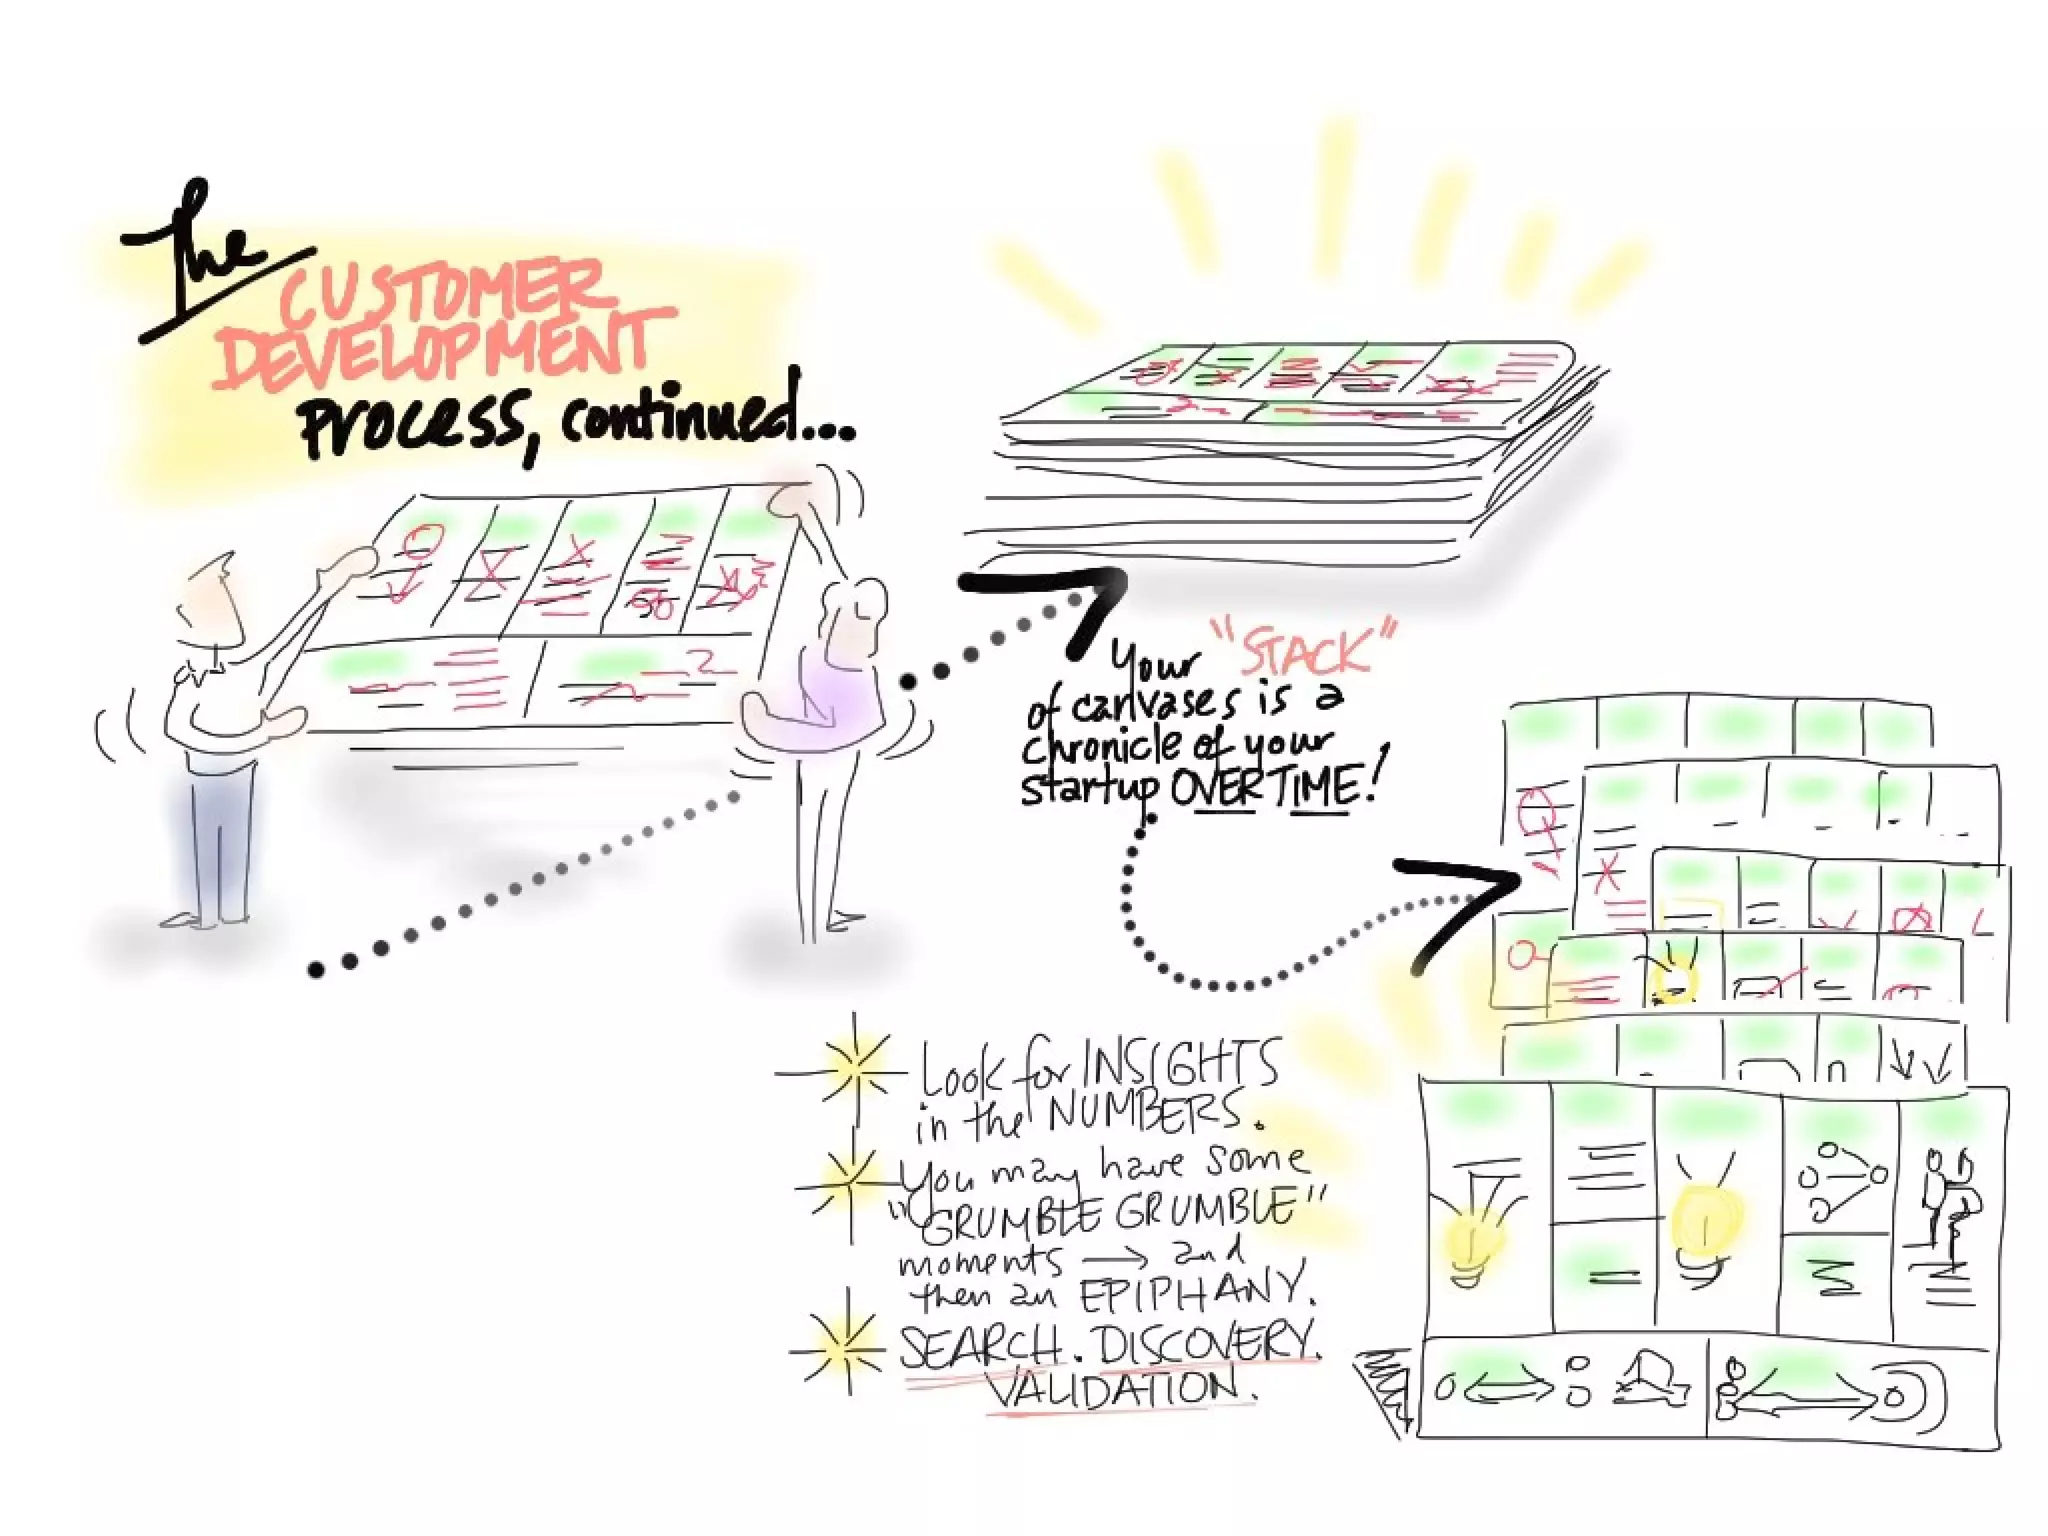 The
CUSTOMER
DEVELOPMENT
Process, continued...
Your "STACK"
of canvases is a
chronicle of your
startup OVER TIME!
Look for INSIGHTS
in the NUMBERS.
You may have some
"GRUMBLE GRUMBLE"
moments → and
then an EPIPHANY.
SEARCH. DISCOVERY.
VALIDATION.